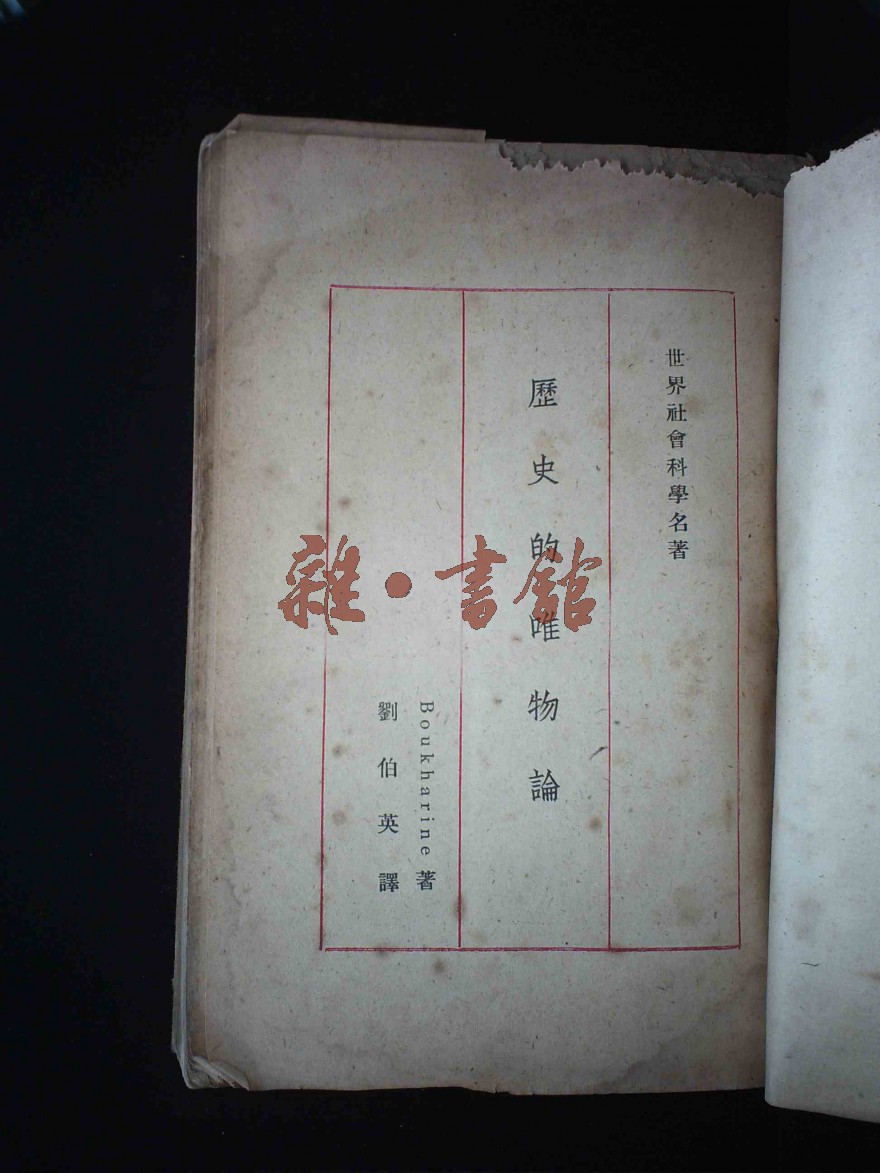 世界社會科學名著
歷史的唯物論
Boukharine 著
劉伯英譯
雜·書館